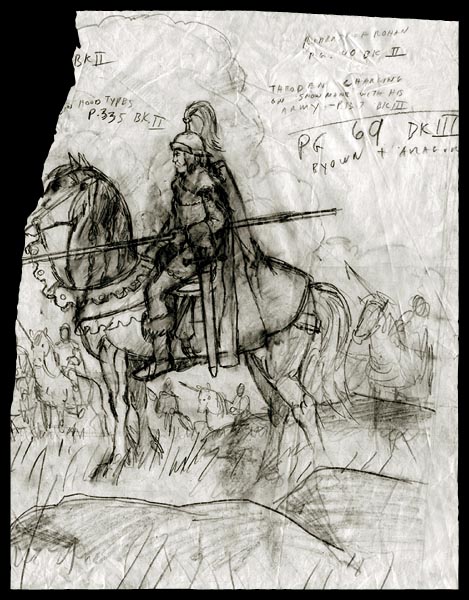 BK II
RIDERS OF ROHAN
PG. 40 BK II
MOOD TYPES
P. 335 BK II
THEODEN CHARGING
ON SNOWMANE WITH HIS
ARMY - P 137 BK III
PG 69 BK III